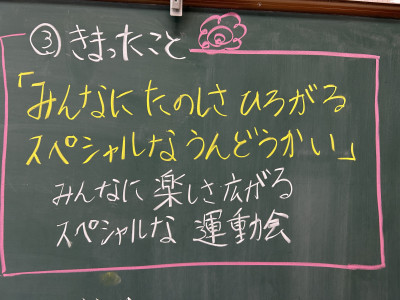 ③きまったこと
「みんなに たのしさ ひろがる
スペシャルな うんどうかい」
みんなに 楽しさ 広がる
スペシャルな 運動会